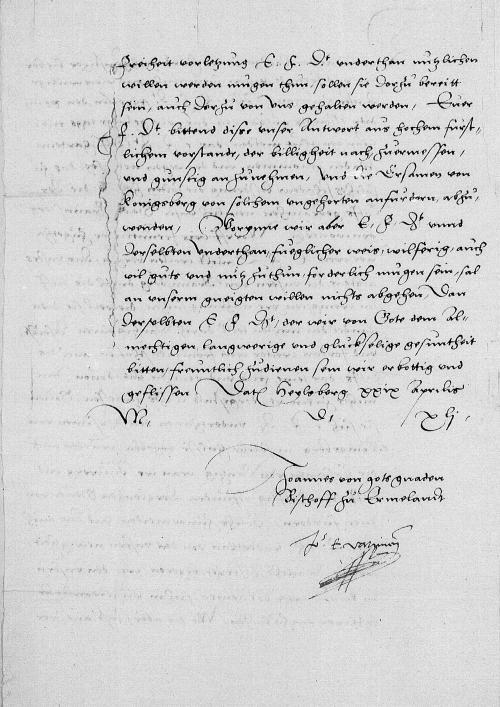 Freiheit vorletzung E. F. Dt underthan nutzlichen
willen werden mugen thun, sollen sie dorzu bereitt
sein, auch dorzu von uns gehalten werden, Euer
F. Dt bittend dise unser Antwort aus hochem furst-
lichem vorstande, der billigheit nach zuermessen,
und gunstig anzunehmen, Und die Ersamen von
Konigsberg von solchem ungehorten anfurdern, abzu-
wenden, Worynne wir aber E. F. Dt unnd
derselbten Underthan, fueglicher weis, wilferig, auch
vil guts und nutz zuthun, forderlich mugen sein, sal
an unserm gneigten willen nichts abgehen Dan
derselbten E F Dt, der wir von Gote dem Al-
mechtigen, langwerige und gluckselige gesuntheit
bitten, freuntlich zudienen sein wir erbottig und
geflissen Dat Heylsberg XXIX Aprilis
M. D. Xlj.
Joannes von gots gnaden
Bischoff zu Ermelandt